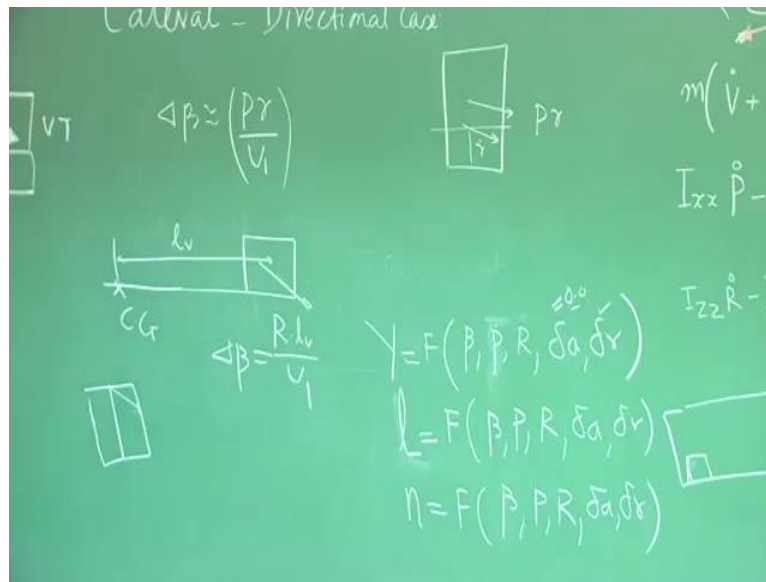 Lateral - Directional Case
VT
Δβ ≅ (Pr / U₁)
Pr
r
m(V̇ +
Iₓₓ Ṗ -
I_zz Ṙ -
lᵥ
CG
Δβ = R.lᵥ / U₁
≈0.0
Y = F(β, P, R, δa, δr)
l = F(β, P, R, δa, δr)
n = F(β, P, R, δa, δr)